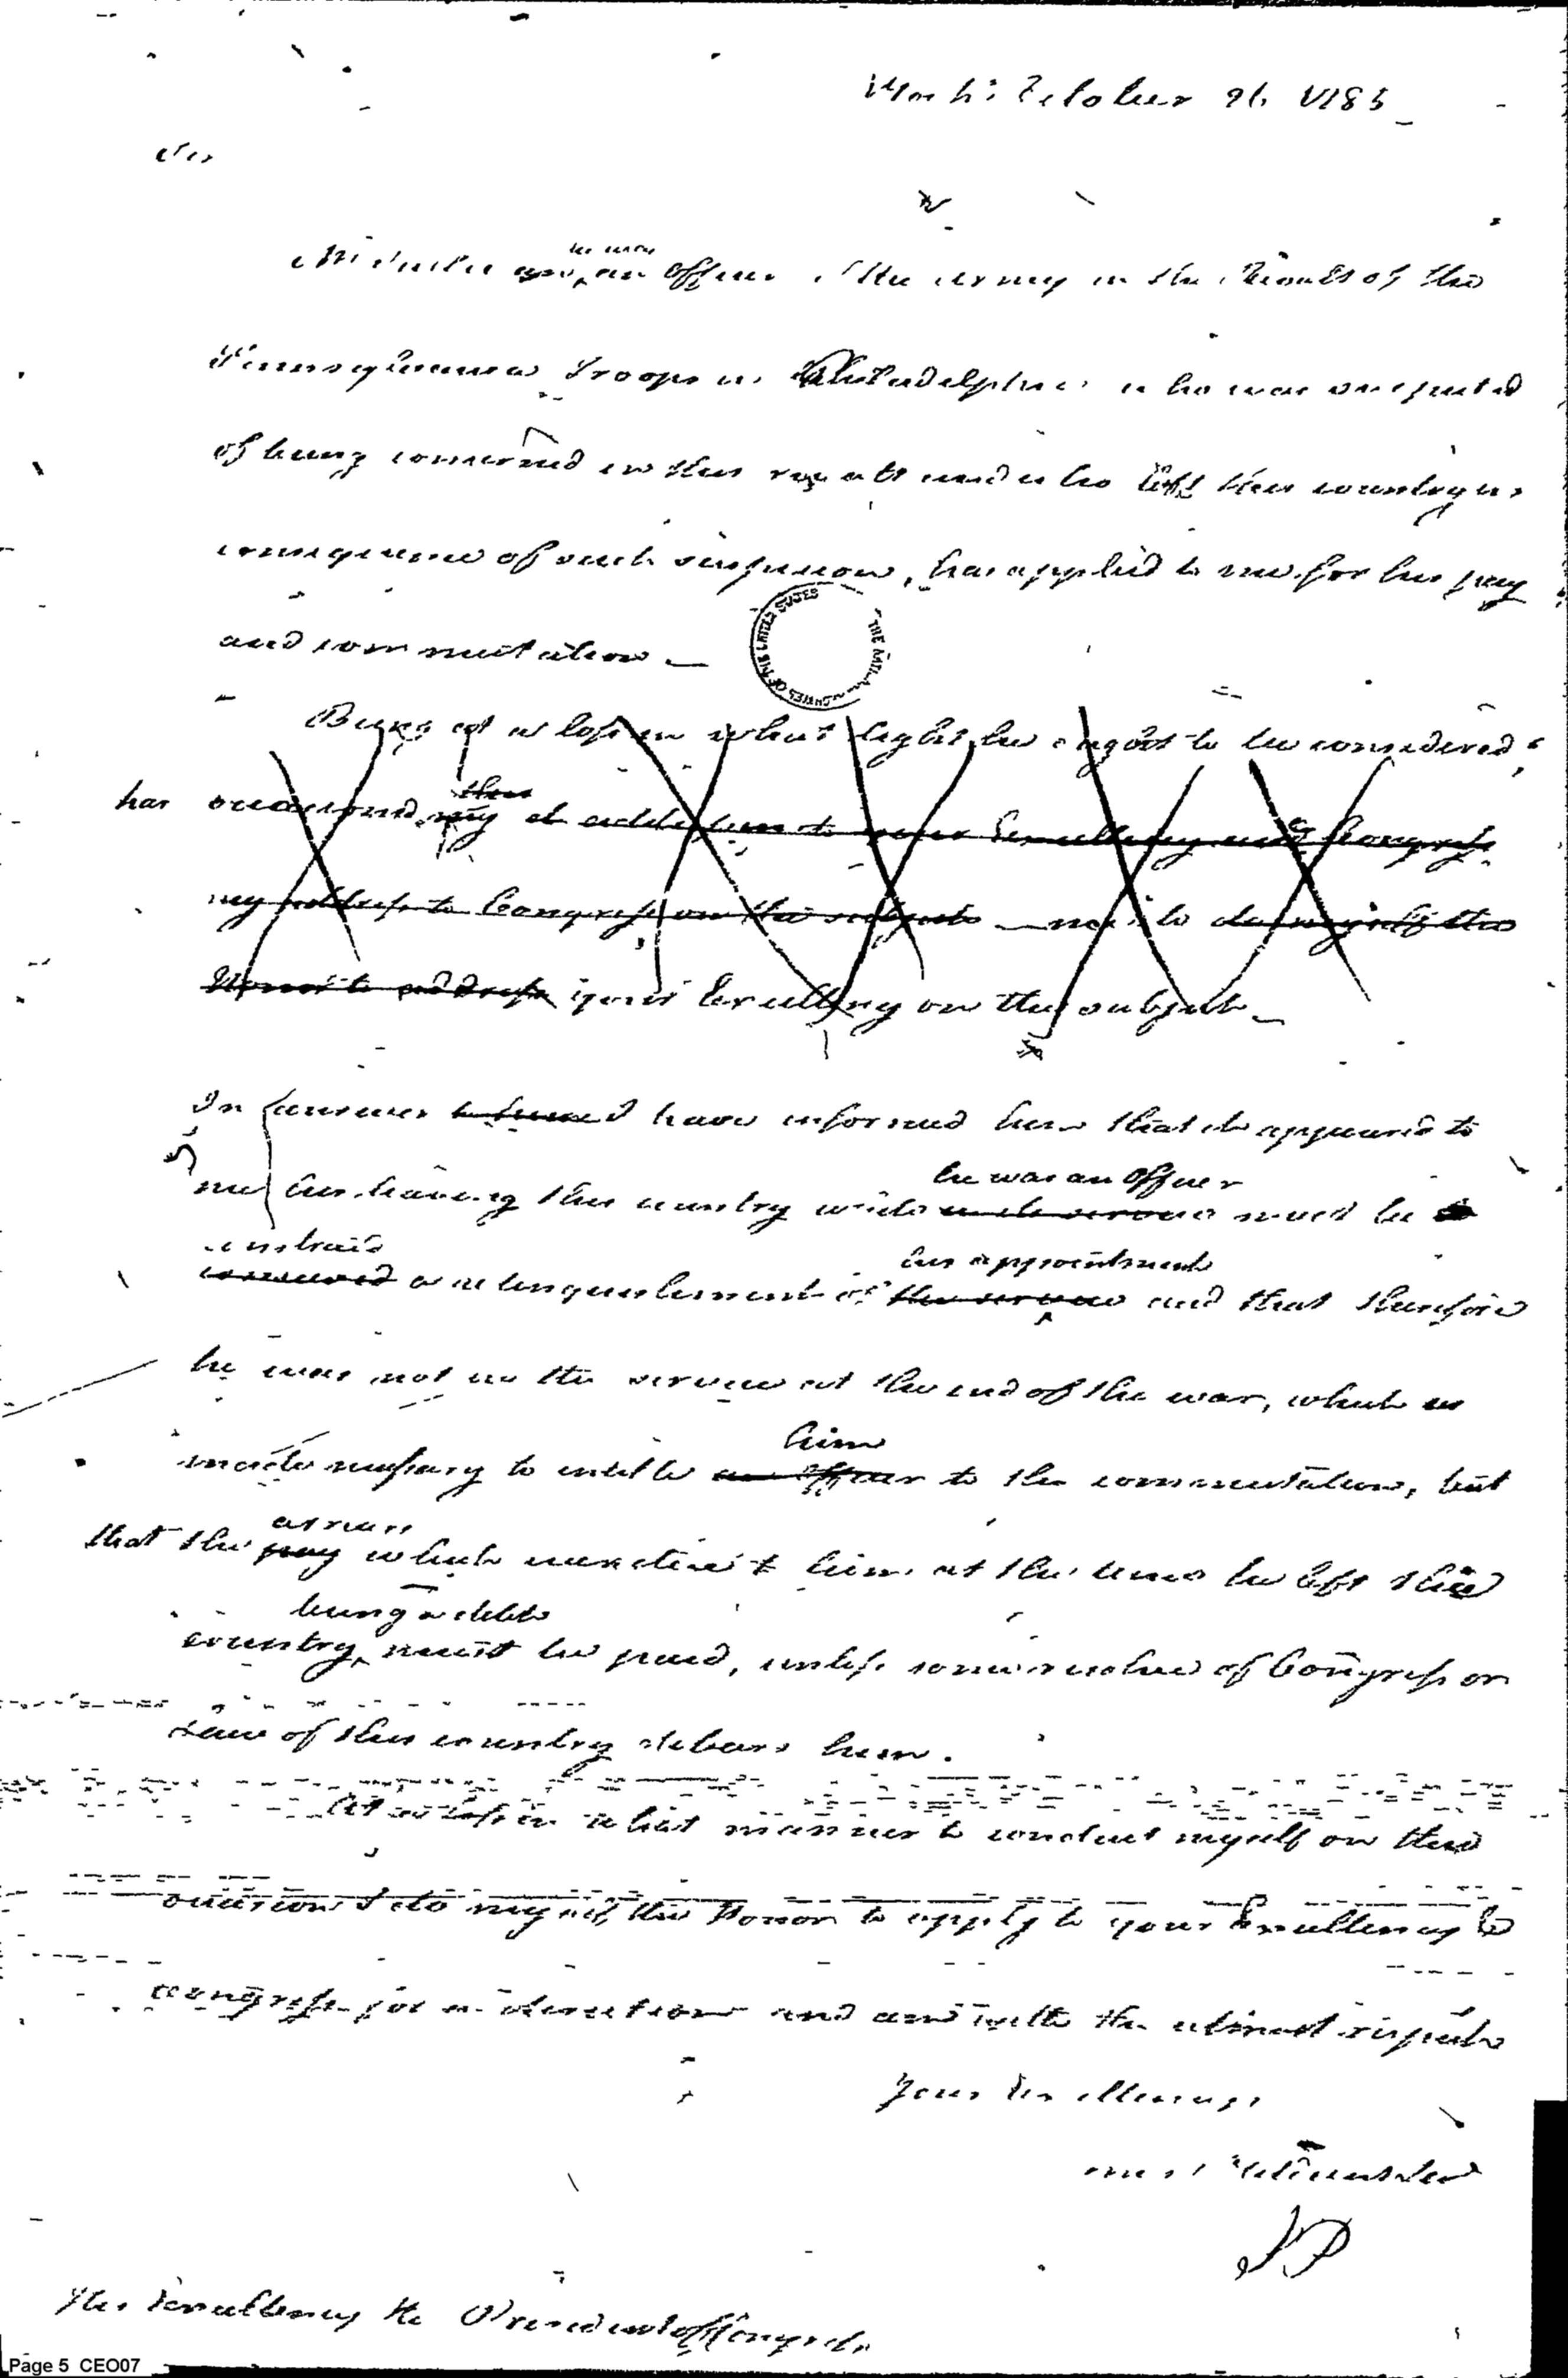 October 1785
Sir
he was
an Officer of the army in the Revolt of the
Pennsylvania Troops in Philadelphia who was suspected
of being concerned in this revolt and who left this country in
consequence of such suspicion, has applied to me for his pay
and commutation —
THE NATIONAL ARCHIVES OF THE UNITED STATES
Being at a loss in what light he ought to be considered
this
has occasiond my address to your Excellency and Congress
my address to Congress on this subject — me to do myself the
Honor to address your Excellency on this subject —
In answer I have informed him that it appeared to
he was an Officer
me his leaving this country while must be a
construed
a relinquishment of
his appointment
the service and that therefore
he was not in the service at the end of the war, which is
him
made necessary to entitle an officer to the commutation, but
arrears
that the pay which were due to him at the time he left this
being a debt
country must be paid, unless some resolve of Congress or
Law of this country debars him.
At a loss in what manner to conduct myself on this
occasion I do myself the Honor to apply to your Excellency &
congress for a direction and am with the utmost respect
Your Excellencys
most Obedient
JP
His Excellency the President of Congress
Page 5 CEO07